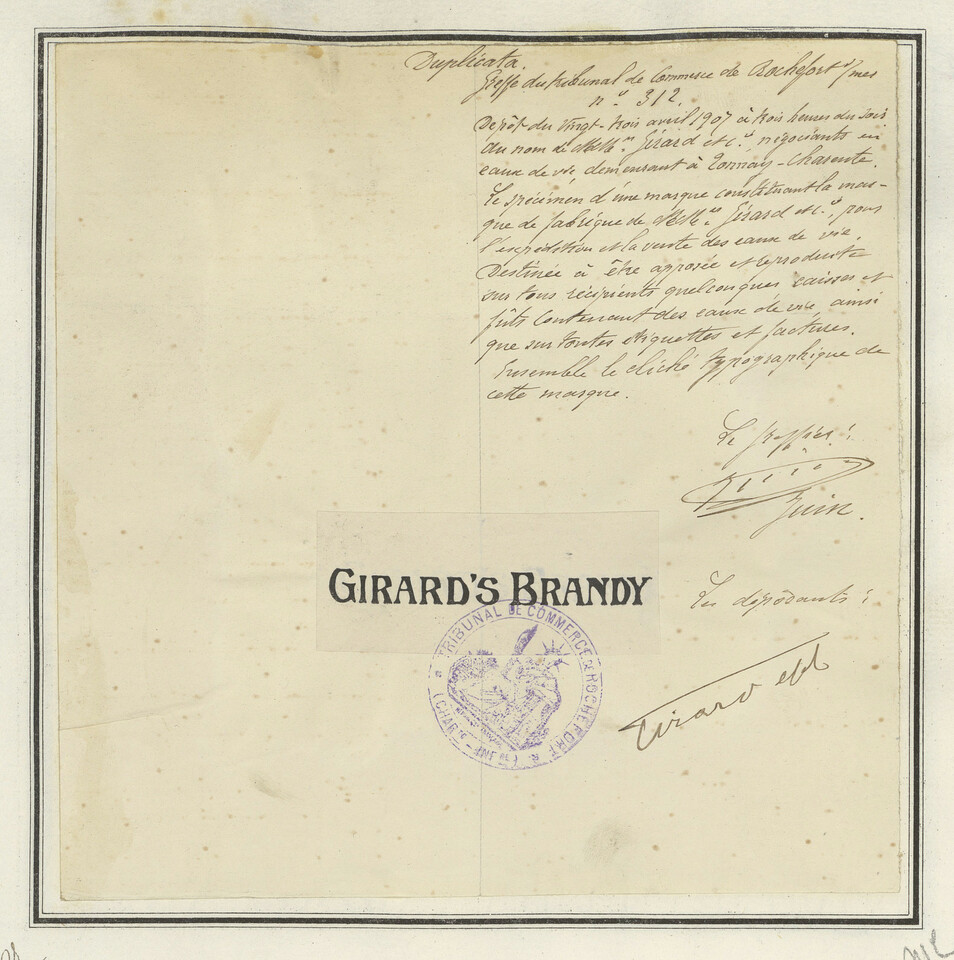 Duplicata.
Greffe du tribunal de Commerce de Rochefort s/mer
n° 312.
Dépôt du vingt-trois avril 1907 à trois heures du soir
du nom de MM.rs Girard et C.ie, négociants en
eaux de vie, demeurant à Tonnay-Charente.
Le spécimen d'une marque constituant la mar-
que de fabrique de MM.rs Girard et C.ie, pour
l'expédition et la vente des eaux de vie.
Destinée à être apposée et reproduite
sur tous récipients quelconques caisses et
fûts contenant des eaux de vie ainsi
que sur toutes étiquettes et factures.
Ensemble le cliché typographique de
cette marque.
Le greffier :
Juin.
GIRARD'S BRANDY
Les déposants :
TRIBUNAL DE COMMERCE DE ROCHEFORT
(CHAR.TE - INF.RE)
Girard et C